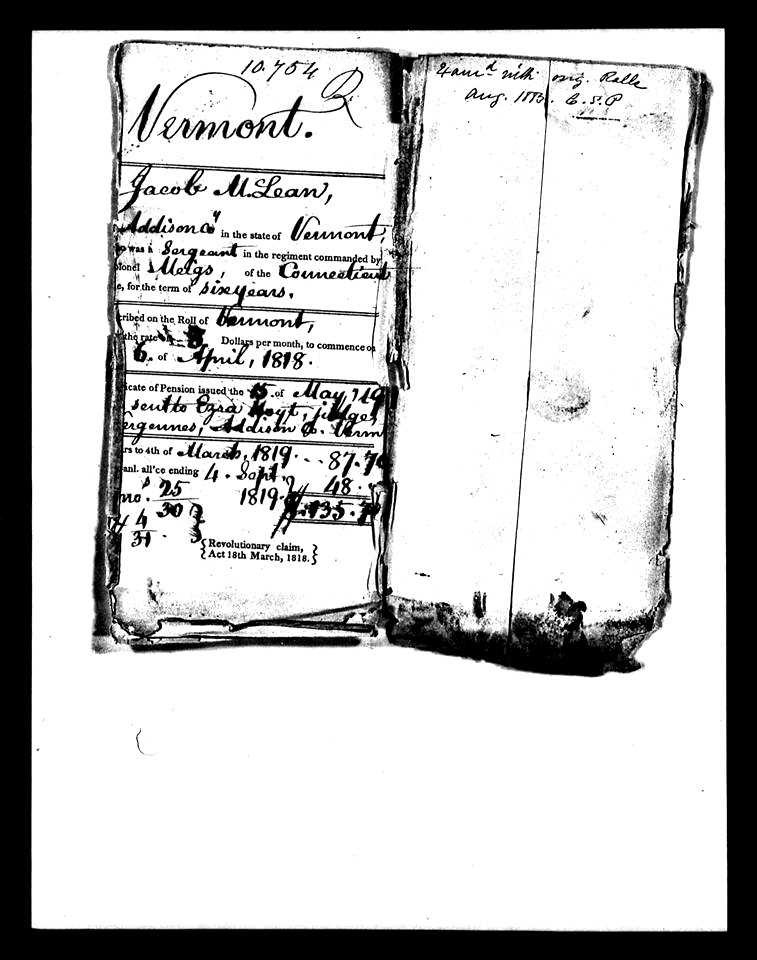 10.754
Vermont.
Jacob McLean,
Addison Cy in the state of Vermont,
was a Sergeant in the regiment commanded by
olonel Meigs, of the Connecticut
e, for the term of six years.
cribed on the Roll of Vermont,
the rate 8 Dollars per month, to commence on
6. of April, 1818.
icate of Pension issued the 15. of May, 19
sent to Ezra Hoyt, judge,
ergennes, Addison Co. Verm
rs to 4th of March, 1819. -- 87.70
anl. all'ce ending 4. Sept.
48.
no. 25
1819.
30
135.70
4
31
Revolutionary claim,
Act 18th March, 1818.
Exam'd with orig. Rolls
Aug. C.S.P